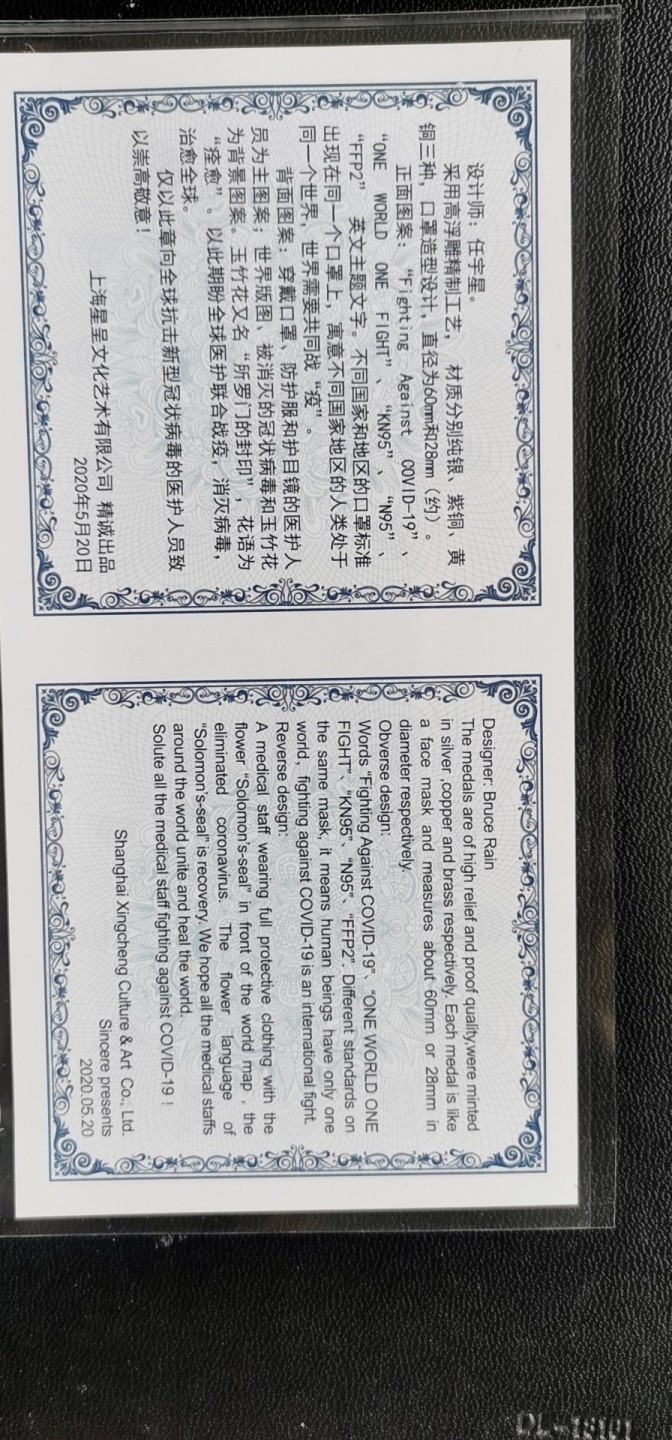 设计师：任宇星。
采用高浮雕精制工艺，材质分别纯银、紫铜、黄
铜三种，口罩造型设计，直径为60mm和28mm（约）。
正面图案：“Fighting Against COVID-19”、
“ONE WORLD ONE FIGHT”、“KN95”、“N95”、
“FFP2” 英文主题文字。不同国家和地区的口罩标准
出现在同一个口罩上，寓意不同国家地区的人类处于
同一个世界，世界需要共同战“疫”。
背面图案：穿戴口罩、防护服和护目镜的医护人
员为主图案；世界版图、被消灭的冠状病毒和玉竹花
为背景图案。玉竹花又名“所罗门的封印”，花语为
“痊愈”。以此期盼全球医护联合战疫，消灭病毒，
治愈全球。
仅以此章向全球抗击新型冠状病毒的医护人员致
以崇高敬意！
上海星呈文化艺术有限公司 精诚出品
2020年5月20日
Designer: Bruce Rain
The medals are of high relief and proof quality,were minted
in silver ,copper and brass respectively. Each medal is like
a face mask and measures about 60mm or 28mm in
diameter respectively.
Obverse design:
Words “Fighting Against COVID-19”、“ONE WORLD ONE
FIGHT”、“KN95”、“N95”、“FFP2”. Different standards on
the same mask, it means human beings have only one
world，fighting against COVID-19 is an international fight.
Reverse design:
A medical staff wearing full protective clothing with the
flower “Solomon's-seal” in front of the world map，the
eliminated coronavirus. The flower language of
“Solomon's-seal” is recovery. We hope all the medical staffs
around the world unite and heal the world.
Solute all the medical staff fighting against COVID-19！
Shanghai Xingcheng Culture & Art Co., Ltd.
Sincere presents
2020.05.20